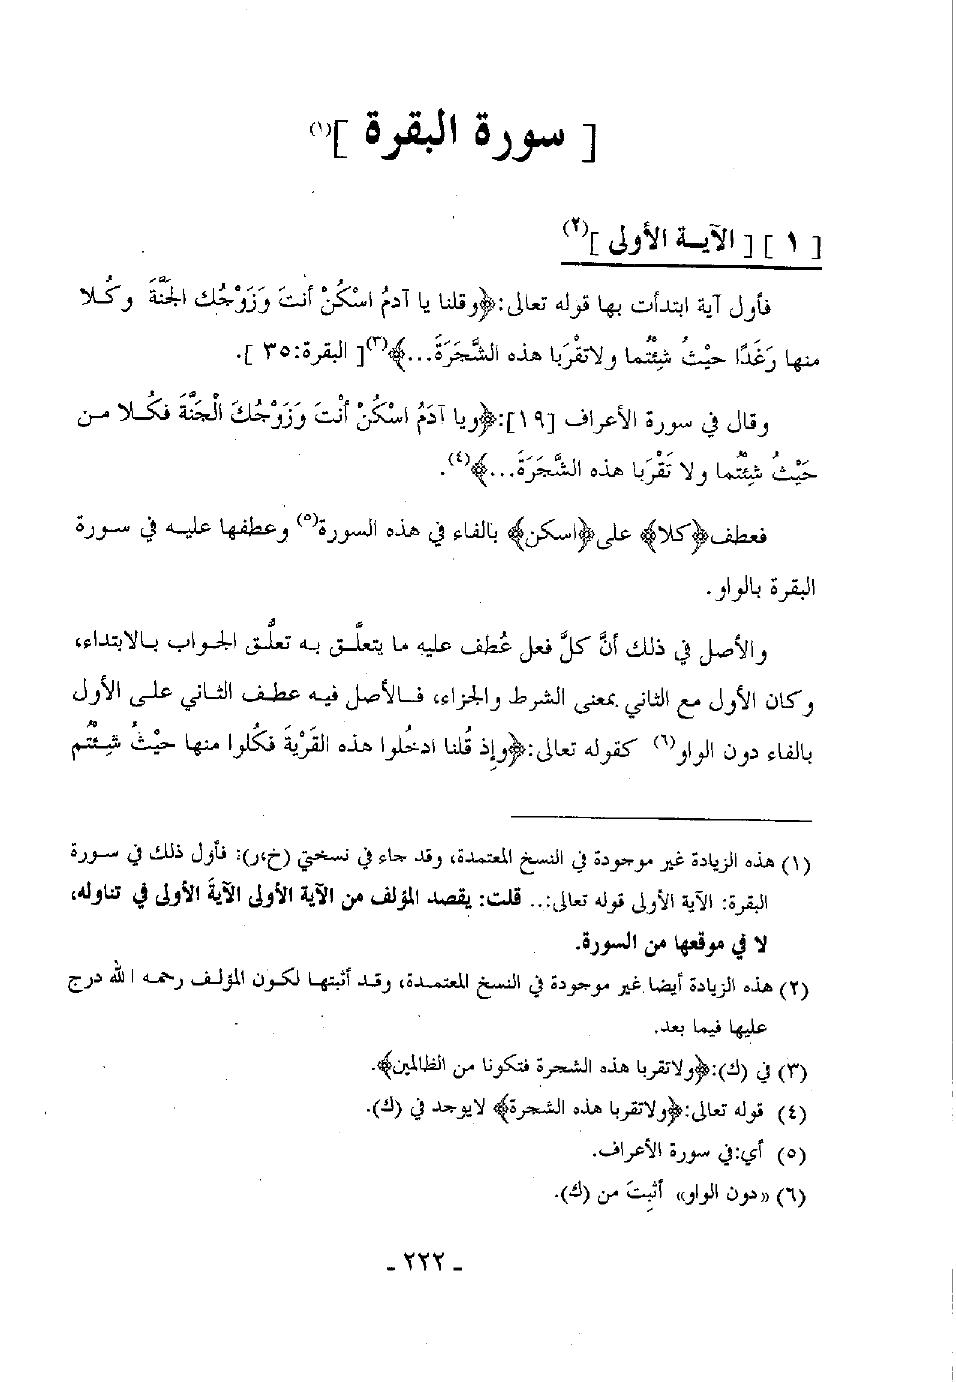 [ سورة البقرة ](١)
[ ١ ] [ الآيــة الأولى ](٢)
فأول آية ابتدأت بها قوله تعالى:﴿وقلنا يا آدمُ اسْكُنْ أنتَ وَزَوْجُك الجَنَّةَ وكُـلا
منها رَغَدًا حيْثُ شِئْتُما ولاتقْرَبا هذه الشَّجَرَةَ...﴾(٣)[ البقرة:٣٥ ].
وقال في سورة الأعراف [١٩]:﴿ويا آدَمُ اسْكُنْ أنْتَ وَزَوْجُكَ الْجَنَّةَ فكُـلا مـن
حَيْثُ شِئْتُما ولا تَقْرَبا هذه الشَّجَرَةَ...﴾(٤).
فعطف﴿كلا﴾ على﴿اسكن﴾ بالفاء في هذه السورة(٥) وعطفها عليـه في سـورة
البقرة بالواو.
والأصل في ذلك أنَّ كلَّ فعل عُطف عليه ما يتعلَّـق بـه تعلُّـق الجـواب بـالابتداء،
وكان الأول مع الثاني بمعنى الشرط والجزاء، فـالأصل فيـه عطـف الثـاني علـى الأول
بالفاء دون الواو(٦) كقوله تعالى:﴿وإذ قُلنا ادخُلوا هذه القَرْيةَ فكُلوا منها حيْثُ شِـئْتُم
(١) هذه الزيادة غير موجودة في النسخ المعتمدة، وقد جاء في نسختي (خ،ر): فأول ذلك في سـورة
البقرة: الآية الأولى قوله تعالى:.. قلت: يقصد المؤلف من الآية الأولى الآيةَ الأولى في تناوله،
لا في موقعها من السورة.
(٢) هذه الزيادة أيضا غير موجودة في النسخ المعتمـدة، وقـد أثبتهـا لكـون المؤلـف رحمـه الله درج
عليها فيما بعد.
(٣) في (ك):﴿ولاتقربا هذه الشجرة فتكونا من الظالمين﴾.
(٤) قوله تعالى:﴿ولاتقربا هذه الشجرة﴾ لايوجد في (ك).
(٥) أي:في سورة الأعراف.
(٦) «دون الواو» أُثبِتَ من (ك).
ـ ٢٢٢ ـ